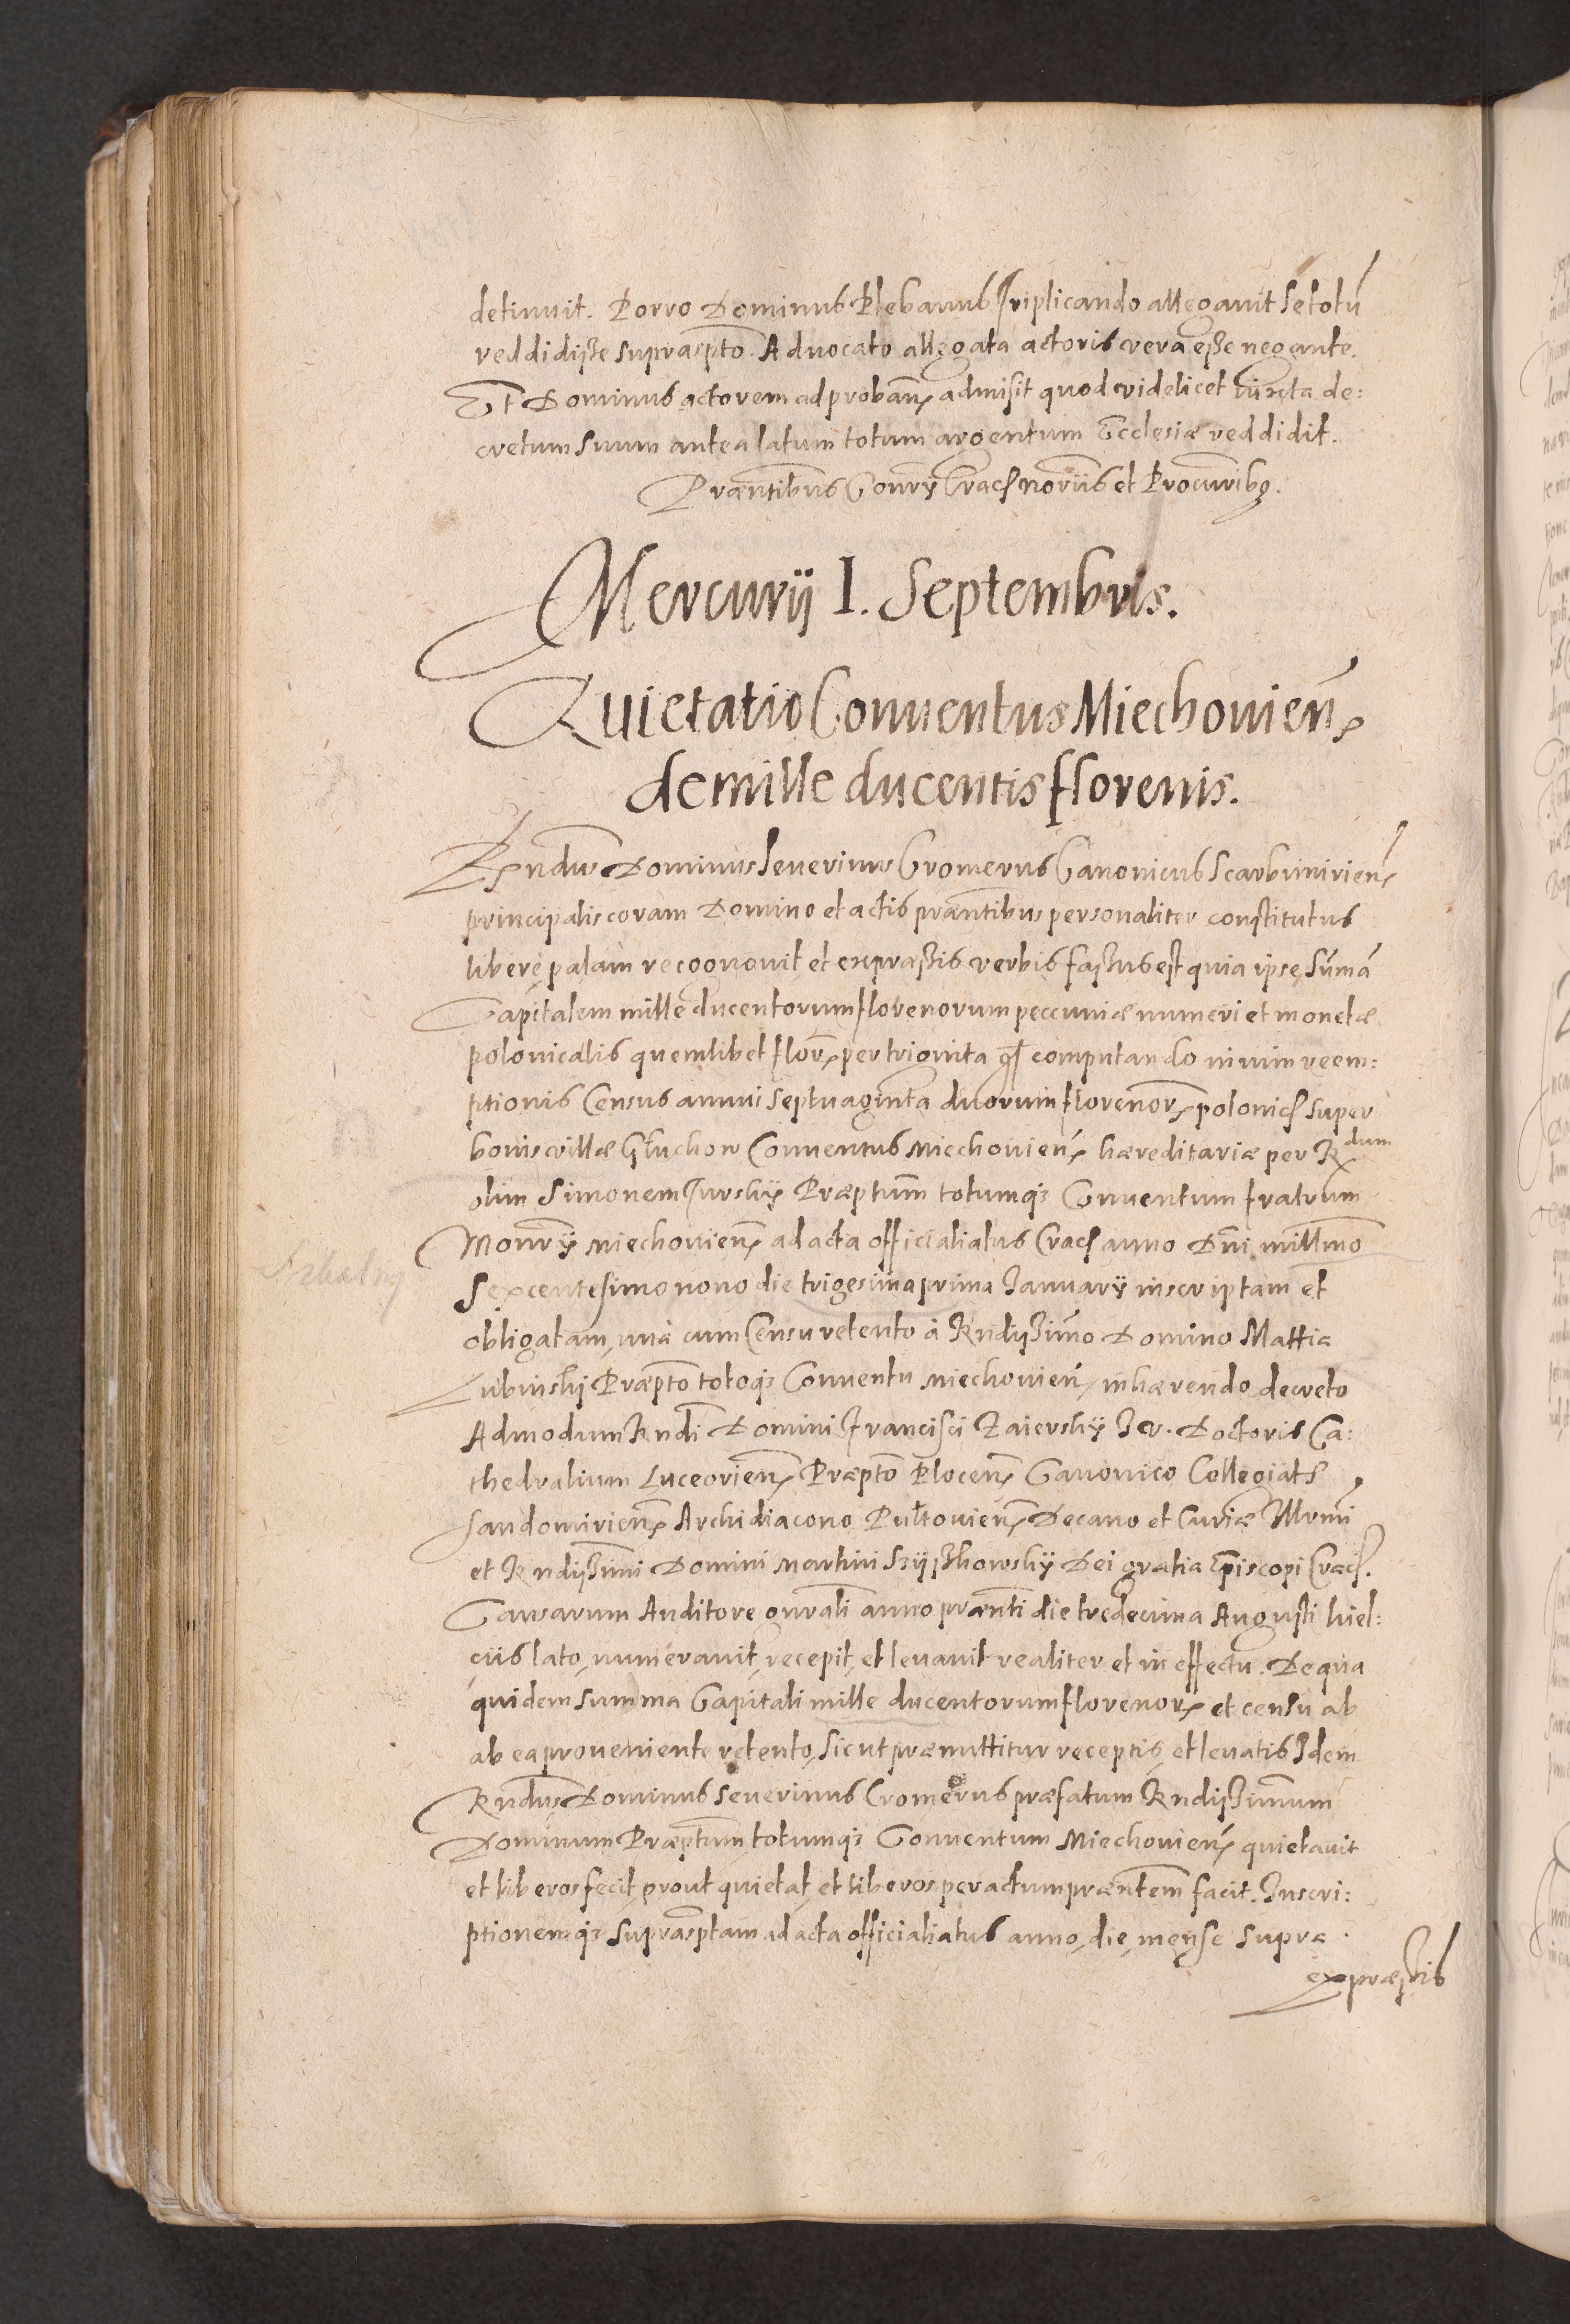 detinuit. Porro Dominus Plebanus triplicando allegauit se totũ
reddidisse supraspto. Aduocato allegata actoris vera esse negante.
Et Dominus actorem ad proban admisit quod videlicet iuxta de:
cretum suum antea latum totum argentum Ecclesiæ reddidit.
Præntibus Conry Crac noriis et Procuribq.
Mercurij I. Septembris.
Quietatio Conuentus Miechouien
de mille ducentis florenis.
Rndus Dominus Seuerinus Cromerus Canonicus Scarbimirien
principalis coram Domino et actis præntibus personaliter constitutus
libere palam recognouit et expræssis verbis fassus est quia ipse sũmã
Capitalem mille ducentorum florenorum peccuniæ numeri et monetæ
polonicalis quemlibet flor per triginta gř computando nimin reem:
ptionis Census annui septuaginta duorum florenor polonic super
bonis villæ Głuchow Conuentus Miechouien hæreditariæ per R dum
olim Simonem Turskij Præptum totumq3 Conuentum fratrum
Monrij Miechouien ad acta officialatus Crac anno Dni millmo
Sexcentesimo nono die trigesima prima Januarij inscriptam et
obligatam, una cum Censu retento à Rndissimo Domino Mattia
Lubinskj Præpto totoq3 Conuentu Miechouien, inhærendo decreto
Admodum Rndi Domini Francisci Zaierskij J. V. Doctoris Ca:
thedralium Luceorien Præpto Plocen Canonico Collegiat
Sandomirien Archidiacono Pultouien Decano et Curiæ Illrmi
et Rndissimi Domini Martini Szyszkowskij Dei gratia Episcopi Crac.
Causarum Auditore gnrali anno prænti die tredecima Augusti kiel:
ciis lato, numerauit, recepit, et leuauit realiter et in effectu. De qua
quidem summa Capitali mille ducentorum florenor et censu ab
ab ea proueniente retento, sicut præmittitur receptis, et leuatis Idem
Rndus Dominus Seuerinus Cromerus præfatum Rndissimum
Dominum Præptum totumq3 Conuentum Miechouien quietauit
et liberos fecit prout quietat, et liberos per actum præntem facit. Inscri:
ptionemq3 suprasptam ad acta officialatus anno, die, mense supra
expræssis